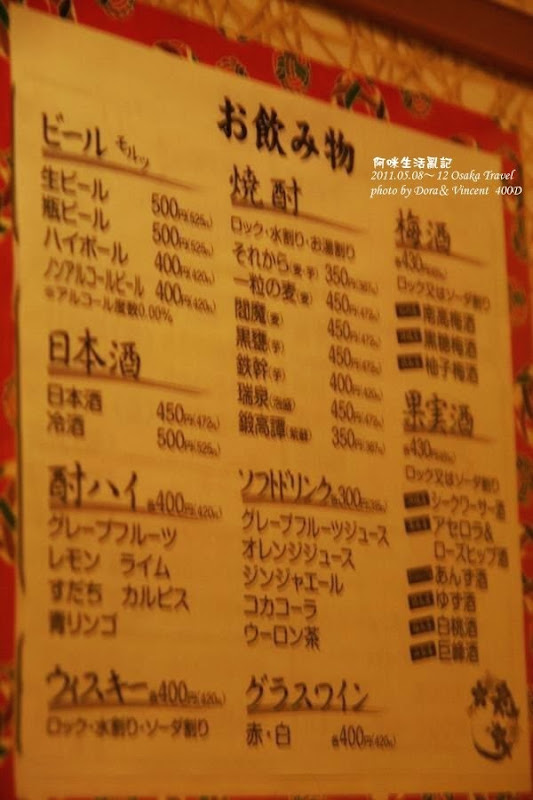 お飲み物
阿咪生活亂記
2011.05.08～12 Osaka Travel
photo by Dora & Vincent 400D
ビール モルツ
生ビール 500円(525円)
瓶ビール 500円(525円)
ハイボール 400円(420円)
ノンアルコールビール 400円(420円)
※アルコール度数0.00%
日本酒
日本酒 450円(472円)
冷酒 500円(525円)
酎ハイ 各400円(420円)
グレープフルーツ
レモン ライム
すだち カルピス
青リンゴ
ウィスキー 各400円(420円)
ロック・水割り・ソーダ割り
焼酎
ロック・水割り・お湯割り
それから(麦・芋) 350円(367円)
一粒の麦(麦) 450円(472円)
閻魔(麦) 450円(472円)
黒甕(芋) 450円(472円)
鉄幹(芋) 400円(420円)
瑞泉(泡盛) 450円(472円)
鍛高譚(紫蘇) 350円(367円)
ソフトドリンク 各300円
グレープフルーツジュース
オレンジジュース
ジンジャエール
コカコーラ
ウーロン茶
グラスワイン
赤・白 各400円(420円)
梅酒
各430円
ロック又はソーダ割り
南高梅酒
黒糖梅酒
柚子梅酒
果実酒
各430円
ロック又はソーダ割り
シークワーサー酒
アセロラ&
ローズヒップ酒
あんず酒
ゆず酒
白桃酒
巨峰酒